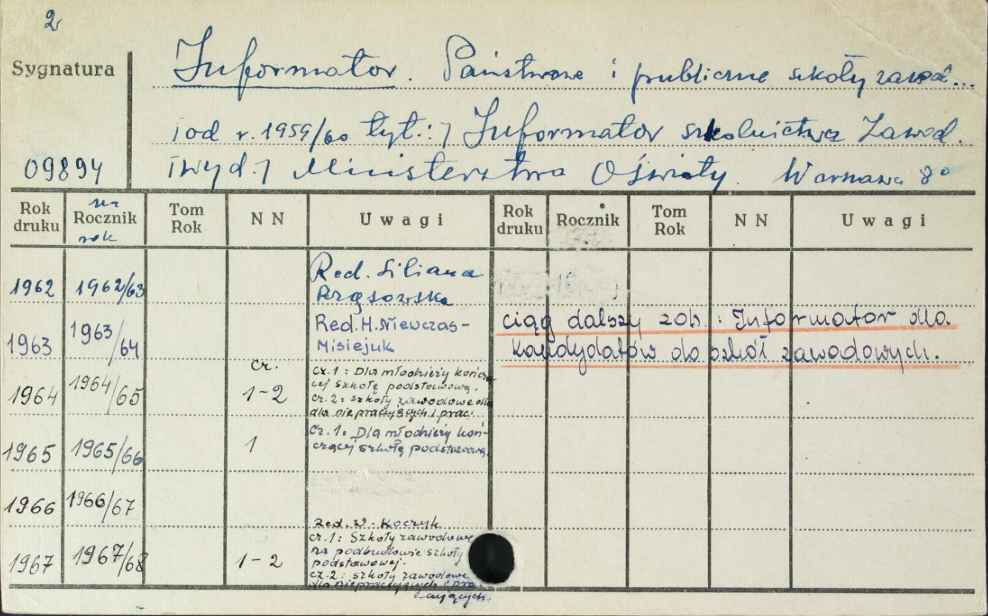 2
Sygnatura
Informator. Państwowe i publiczne szkoły zawod...
i od r. 1959/60 tyt.: / Informator szkolnictwa Zawod.
09894
/wyd./ Ministerstwa Oświaty. Warszawa 8°
Rok druku na Rocznik rok Tom Rok NN Uwagi Rok druku Rocznik Tom Rok NN Uwagi
1962 1962/63 Red. Liliana
1963 1963/64 Red. H. Niewczas-
Misiejuk
ciąg dalszy zob.: Informator dla
kandydatów do szkół zawodowych.
1964 1964/65 cz. 1-2 cz. 1: Dla młodzieży kończą-
cej szkołę podstawową.
cz. 2: szkoły zawodowe dla
dla niepracujących i prac.
1965 1965/66 1 cz. 1: Dla młodzieży koń-
czącej szkołę podstawową.
1966 1966/67
1967 1967/68 1-2 Red. W. Koczyk
cz. 1: Szkoły zawodowe
na podbudowie szkoły
podstawowej.
cz. 2: szkoły zawodowe
dla niepracujących i pra
cujących.